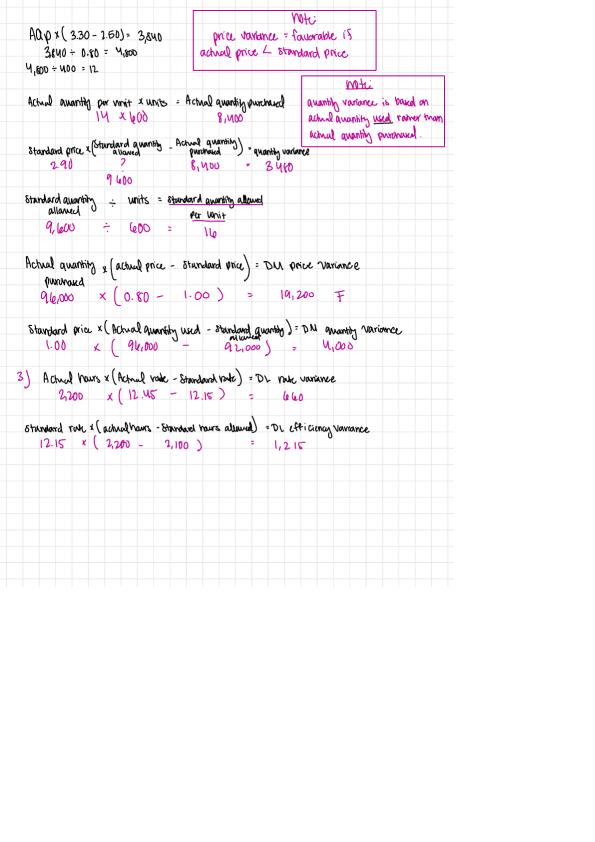 AQp × ( 3.30 - 2.50) = 3,840
3840 ÷ 0.80 = 4,800
4,800 ÷ 400 = 12
note:
price variance = favorable if
actual price < standard price
note:
quantity variance is based on
actual quantity used rather than
actual quantity purchased.
Actual quantity per unit × units = Actual quantity purchased
14 × 600 8,400
Standard price × (Standard quantity allowed - Actual quantity purchased) = quantity variance
2.90 ? 8,400 = 3480
9600
Standard quantity allowed ÷ units = standard quantity allowed per unit
9,600 ÷ 600 = 16
Actual quantity purchased × (actual price - Standard price) = DM price variance
96,000 × (0.80 - 1.00) = 19,200 F
Standard price × (Actual quantity used - Standard quantity allowed) = DM quantity variance
1.00 × ( 96,000 - 92,000 ) = 4,000
3) Actual hours × (Actual rate - Standard rate) = DL rate variance
2,200 × ( 12.45 - 12.15 ) = 660
Standard rate × (actual hours - Standard hours allowed) = DL efficiency variance
12.15 × ( 2,200 - 2,100 ) = 1,215